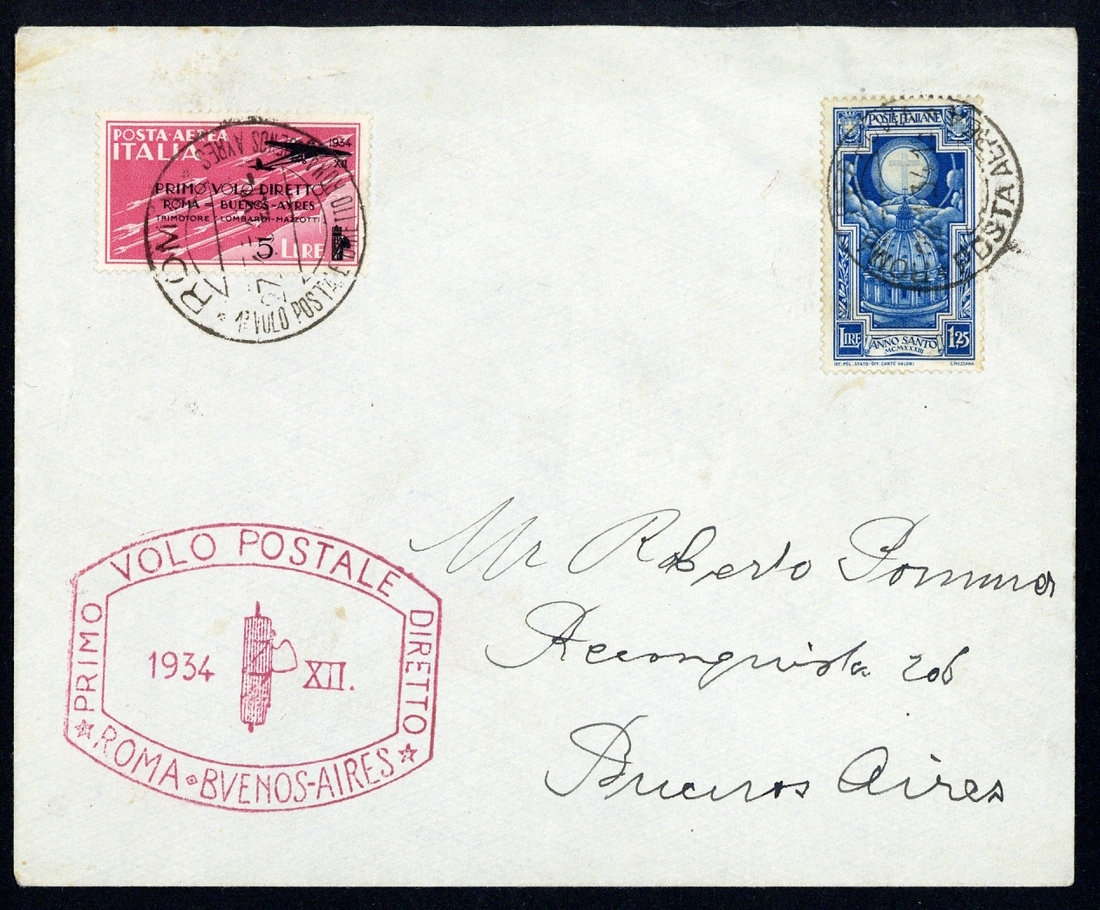 POSTA·AEREA
ITALIA
1934
XII
PRIMO VOLO DIRETTO
ROMA - BUENOS-AYRES
TRIMOTORE "LOMBARDI-MAZZOTTI"
5 LIRE
ROMA
1º VOLO POSTALE DIRETTO ROMA BUENOS AYRES
POSTE ITALIANE
LIRE
ANNO SANTO
MCMXXXIII
1,25
IST. POL. STATO-OFF. CARTE VALORI
C. MEZZANA
ROMA POSTA AEREA
PRIMO VOLO POSTALE DIRETTO
1934 XII.
ROMA BVENOS-AIRES
Mr Roberto
Reconquista 206
Buenos Aires